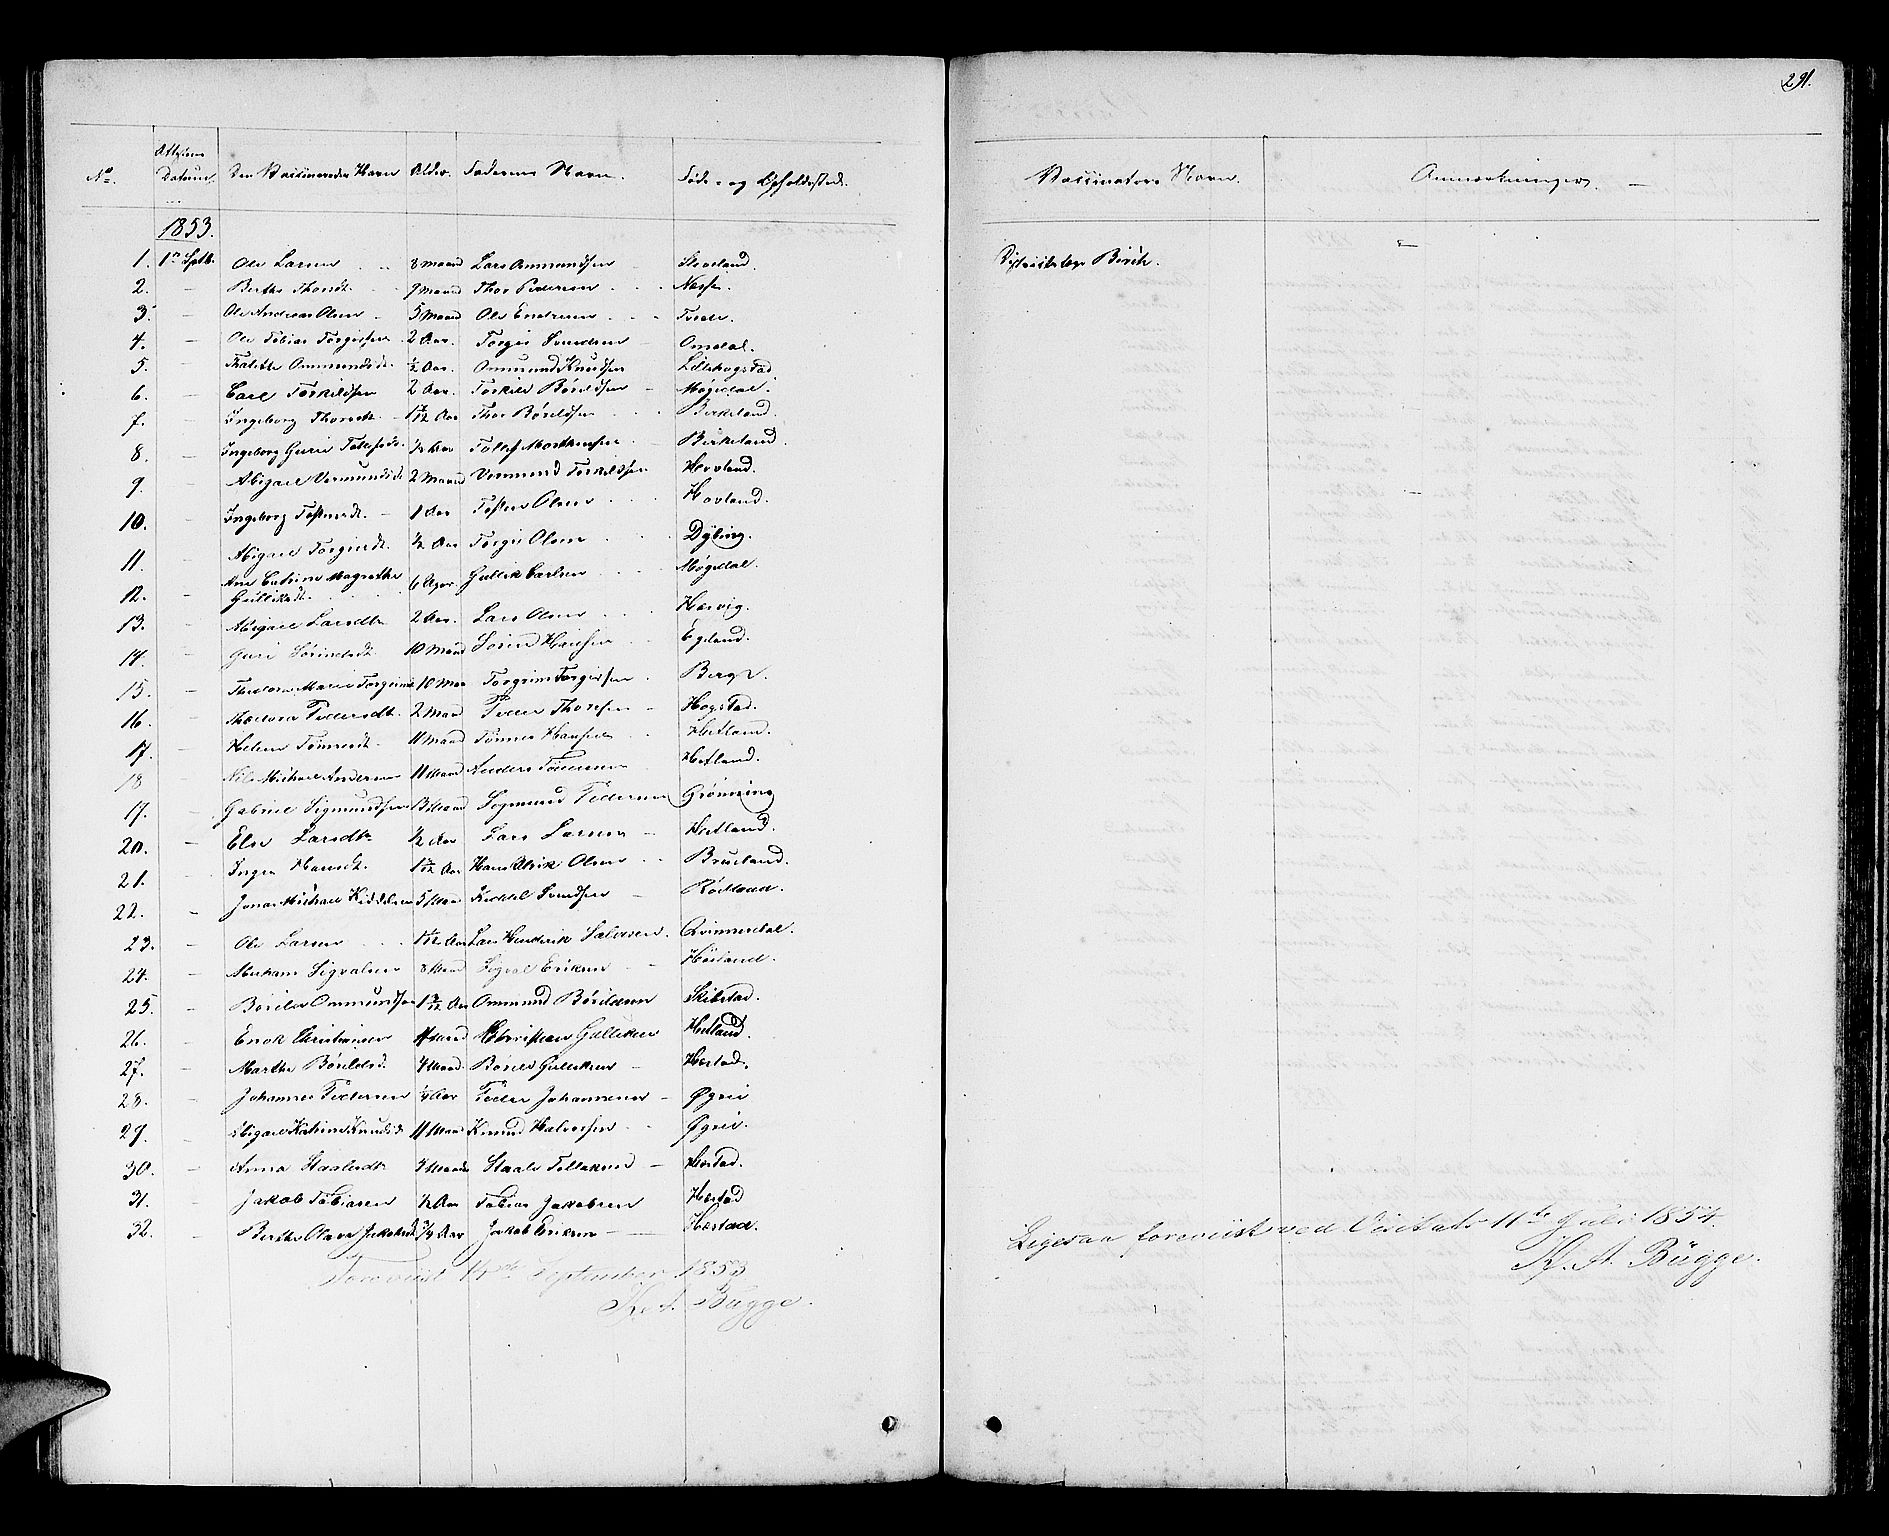 291.
Attestens
No. Datum. Den Vaccineredes Navn Alder. Faderens Navn. Føde- og Opholdssted. Vaccinateurs Navn. Anmærkninger.
1853.
1. 1n Septb. Ole Larsen 8 Maaned Lars Ommundsen Sleveland. Districtslæge Birch.
2. — Berthe Thorsdt. 9 Maaned Thor Pedersen Nesse.
3. — Ole Andreas Olsen 5 Maaned Ole Endresen Tveite.
4. — Ole Tobias Torgiersen 2 Aar. Torgier Svendsen Omdal.
5. — Ommundsdt. ½ Aar. Ommund Knudsen Lillehogstad
6. — Carl Torkildsen 2 Aar. Torkild Børildsen Møgedal.
7. — Ingeborg Thorsdt. Aar Thor Børildsen Birkeland.
8. — Ingeborg Gurie Tollefsdt. ½ Aar Tollef Mortensen Birkeland.
9. — Abigael Vermundsdt 2 Maaned Vermund Torkildsen Hovland.
10. — Ingeborg Tostensdt. 1 Aar Tosten Olsen Hovland.
11. — Abigael Torgiersdt. ½ Aar Torgier Olsen Dybing.
12. — Ane Catrine Magrethe Gulliksdt. 6 Uger Gullik Carlsen Møgedal.
13. — Abigael Larsdtr 2 Aar. Lars Olsen Hæsvig.
14. — Guri Sørensdt. 10 Maaned Søren Hansen Egeland.
15. — Theodora Marie Torgrims 10 Maa Torgrim Torgiersen Berge.
16. — Theodora Pedersdt. 2 Maaned Peder Thorsen Hogstad.
17. — Helene Tønnesdt. 11 Maaned Tønnes Hansen Hetland.
18 — Nils Michael Andersen 11 Maaned Anders Tønnesen Hetland.
17. — Gabriel Sigmundsen Maaned Sigmund Pedersen Grønning
20. — Else Larsdtr ½ Aar Lars Larsen Hetland.
21. Inger Hansdt. Aar Hans Ulrik Olsen Brueland.
22. — Jonas Michael Kiddelsen 5 Maa Kiddel Svendsen Rødland.
23. — Ole Larsen Aar Lars Henderik Salvesen. Qvinnesdal.
24. — Abraham Sigvalsen 8 Maaned Sigval Eriksen Høiland.
25. — Børild Ommundsen Aar Ommund Børildsen Skibstad.
26. — Enok Christiansen 11 Maaned Christian Gulliksen Hetland.
27. — Marthe Børildsdt. 4 Maaned. Børild Gulliksen Hæstad.
28. — Johannes Pedersen Aar Peder Johannesen — Øgrei
29. — Abigael Katrine Knudsdt. 11 Maaned Knud Halvorsen Øgrei.
30. — Anna Staalesdtr Maaned Staale Tollaksen — Hæstad.
31. — Jakob Tobiasen ½ Aar Tobias Jakobsen Hæstad
32. — Berthe Olava Jakobsdt. ¾ Aar Jakob Eriksen — Hæstad.
Foreviist 14de September 1853
K. A. Bügge.
Ligesaa foreviist ved Visitats 11te Juli 1854.
K. A. Bügge.